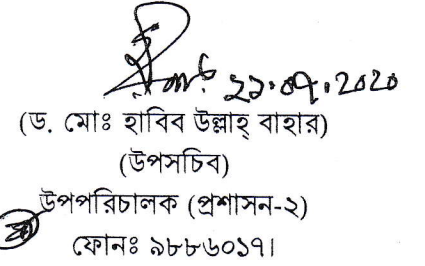 ২১.০৭.২০২০
(ড. মোঃ হাবিব উল্লাহ্ বাহার)
(উপসচিব)
উপপরিচালক (প্রশাসন-২)
ফোনঃ ৯৮৮৬০১৭।